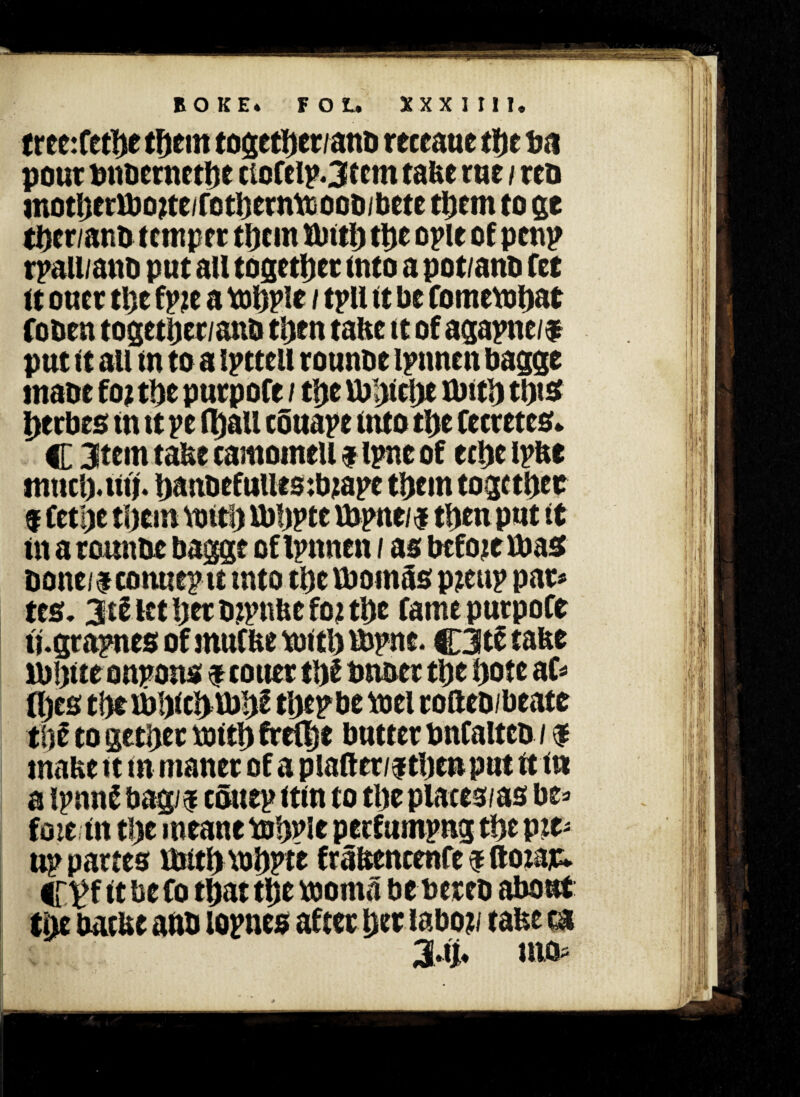 BOKE. FOL. XXXIIII.
tree: sethe them together/and receaue the va
pour vndernethe closely. Item take rue / red
motherworte/sothernwood/bete them to ge
ther/and temper them with the oyle of peny
ryall/and put all together into a pot/and set
it ouer the fyre a whyle / tyll it be somewhat
soden together/and then take it of agayne/⁊
put it all in to a lyttell rounde lynnen bagge
made for the purpose / the whiche with this
herbes in it ye shall cōuaye into the secretes.
¶ Item take camomell ⁊ lyne of eche lyke
much. iiij. handefulles: braye them together
⁊ sethe them with whyte wyne/⁊ then put it
in a rounde bagge of lynnen / as before was
done/⁊ conuey it into the womās preuy par-
tes. Itē let her drynke for the same purpose
ij. graynes of muske with wyne. ¶ Itē take
white onyons ⁊ couer thē vnder the hote as-
shes the which whē they be wel rosted/beate
thē to gether with freshe butter vnsalted / ⁊
make it in maner of a plaster/⁊ then put it in
a lynnē bag/⁊ cōuey it in to the places/as be-
fore in the meane whyle perfumyng the pre-
uy partes with whyte frākencense ⁊ storax.
¶ Yf it be so that the womā be vexed about
the backe and loynes after her labor/ take ca
I.ij. mo-